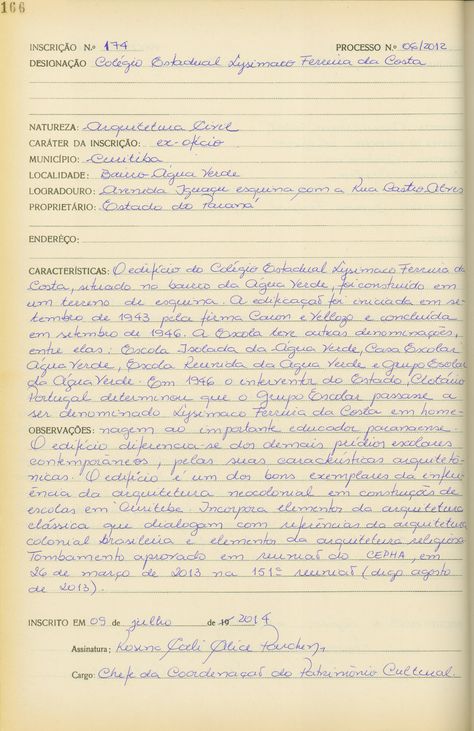 166
INSCRIÇÃO N.o 174 PROCESSO N.o 06/2012
DESIGNAÇÃO Colégio Estadual Lysimaco Ferreira da Costa
NATUREZA: Arquitetura Civil
CARÁTER DA INSCRIÇÃO: ex-ofício
MUNICÍPIO: Curitiba
LOCALIDADE: Bairro Água Verde
LOGRADOURO: Avenida Iguaçu esquina com a Rua Castro Alves
PROPRIETÁRIO: Estado do Paraná
ENDERÊÇO:
CARACTERÍSTICAS: O edifício do Colégio Estadual Lysimaco Ferreira da
Costa, situado no bairro da Água Verde, foi construído em
um terreno de esquina. A edificação foi iniciada em se-
tembro de 1943 pela firma Caron e Vellozo e concluída
em setembro de 1946. A Escola teve outras denominações,
entre elas: Escola Isolada da Água Verde, Casa Escolar
Água Verde, Escola Reunida da Água Verde e Grupo Escolar
da Água Verde. Em 1946 o interventor do Estado, Clotário
Portugal determinou que o Grupo Escolar passasse a
ser denominado Lysimaco Ferreira da Costa em home-
OBSERVAÇÕES: nagem ao importante educador paranaense.
O edifício diferencia-se dos demais prédios escolares
contemporâneos, pelas suas características arquitetô-
nicas. O edifício é um dos bons exemplares da influ-
ência da arquitetura neocolonial em construções de
escolas em Curitiba. Incorpora elementos da arquitetura
clássica que dialogam com referências da arquitetura
colonial brasileira e elementos da arquitetura religiosa.
Tombamento aprovado em reunião do CEPHA, em
26 de março de 2013 na 151ª reunião (digo agosto
de 2013).
INSCRITO EM 09 de julho de 19 2014
Assinatura: Rosina Alice
Cargo: Chefe da Coordenação do Patrimônio Cultural.